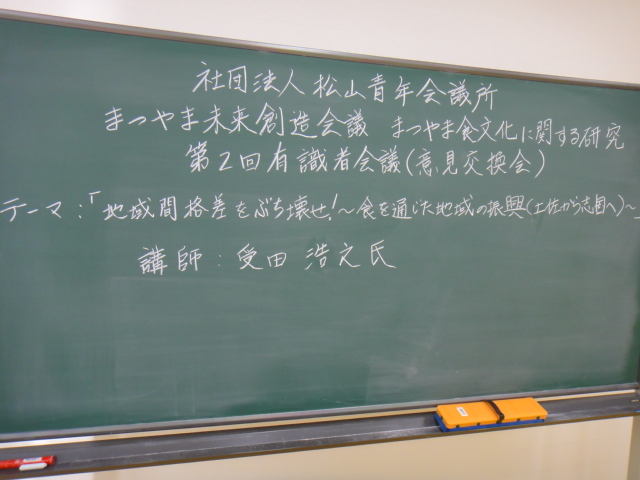 社団法人 松山青年会議所
まつやま未来創造会議 まつやま食文化に関する研究
第2回有識者会議(意見交換会)
テーマ:「地域間格差をぶち壊せ!～食を通じた地域の振興(土佐から志国へ)～
講師:受田 浩之氏